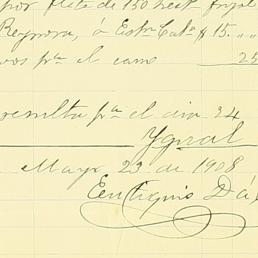 por flete de 150 hect. frijol
Reynosa, á Estn Cab. $15.,,
vos pra el cams 25
resulta pra el dia 24
Ygual
Mayo 23 de 1908
Eutiquio Dá